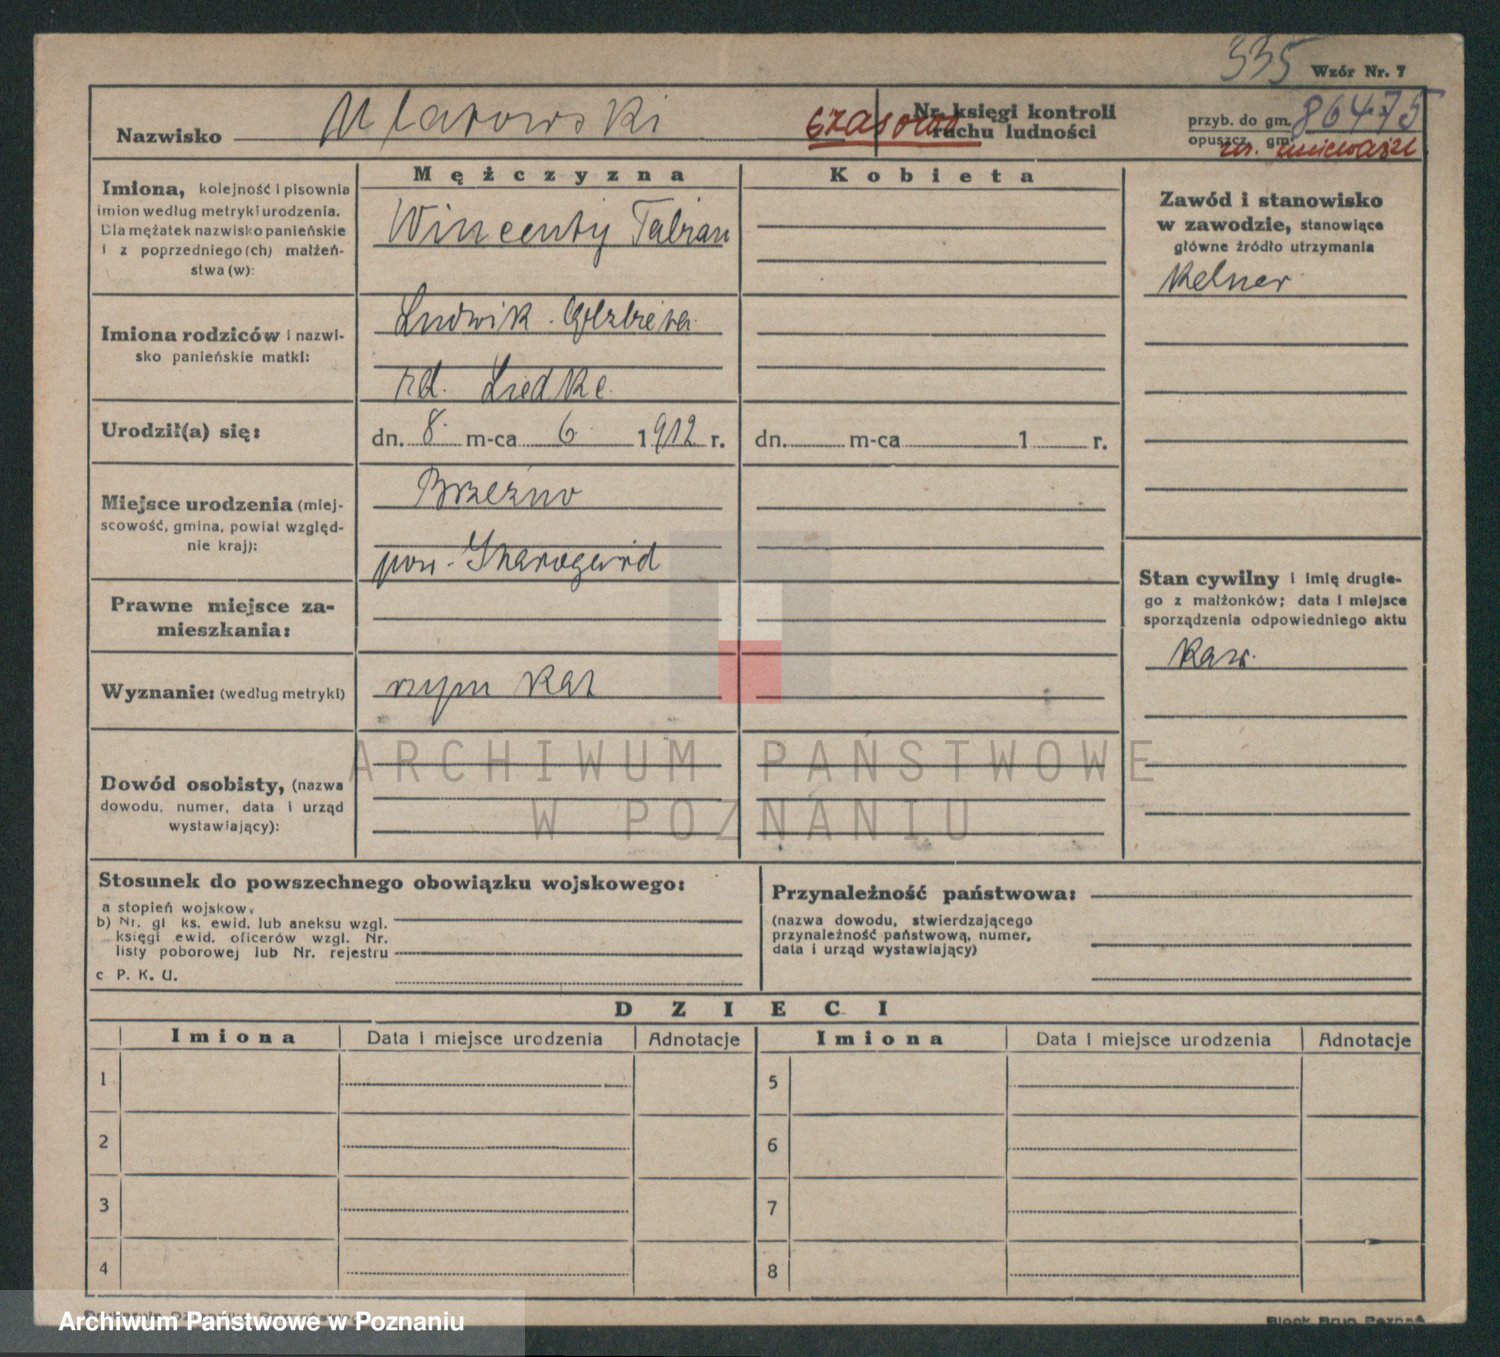 335 Wzór Nr. 7
Nazwisko
czasowo
Nr. księgi kontroli
ruchu ludności
przyb. do gm. 86475
opuszcz. gm. unieważn.
Mężczyzna
Kobieta
Imiona, kolejność i pisownia
imion według metryki urodzenia.
Dla mężatek nazwisko panieńskie
i z poprzedniego(ch) małżeń-
stwa(w):
Wincenty Fabian
Zawód i stanowisko
w zawodzie, stanowiące
główne źródło utrzymania
Kelner
Imiona rodziców i nazwi-
sko panieńskie matki:
Ludwik. Elżbieta
zd. Liedke
Urodził(a) się:
dn. 8. m-ca 6. 1912 r.
dn. m-ca 1 r.
Miejsce urodzenia (miej-
scowość, gmina, powiat względ-
nie kraj):
Brzeźno
pow. Starogard
Prawne miejsce za-
mieszkania:
Stan cywilny i imię drugie-
go z małżonków; data i miejsce
sporządzenia odpowiedniego aktu
kaw.
Wyznanie: (według metryki)
rzym kat
Dowód osobisty, (nazwa
dowodu, numer, data i urząd
wystawiający):
ARCHIWUM PAŃSTWOWE
W POZNANIU
Stosunek do powszechnego obowiązku wojskowego:
a stopień wojskow,
b) Nr. gł ks. ewid. lub aneksu wzgl.
księgi ewid. oficerów wzgl. Nr.
listy poborowej lub Nr. rejestru
c P. K. U.
Przynależność państwowa:
(nazwa dowodu, stwierdzającego
przynależność państwową, numer,
data i urząd wystawiający)
DZIECI
Imiona Data i miejsce urodzenia Adnotacje Imiona Data i miejsce urodzenia Adnotacje
1 5
2 6
3 7
4 8
Archiwum Państwowe w Poznaniu